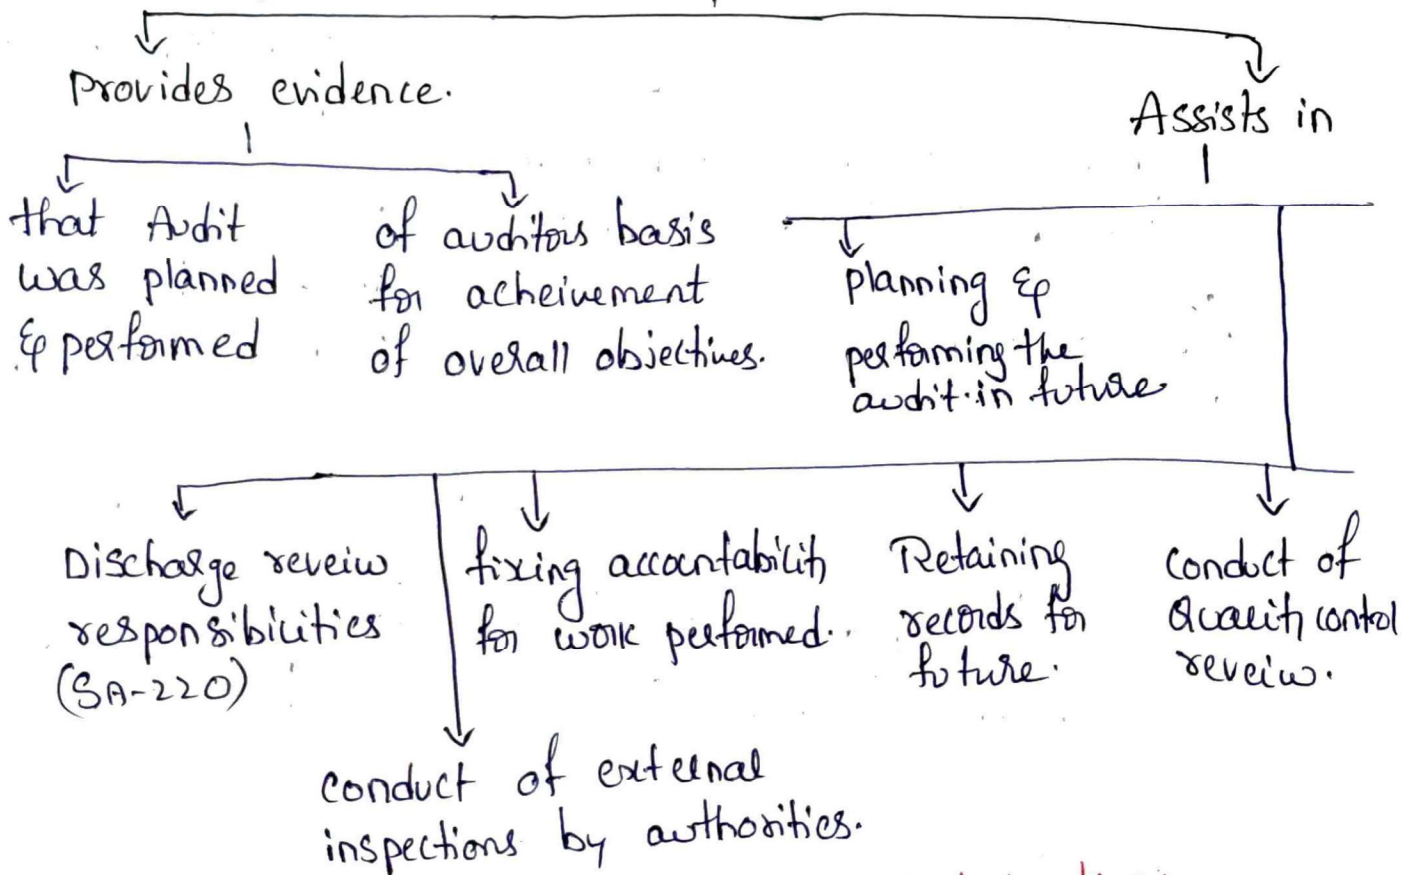 Provides evidence.
Assists in
that Audit
was planned
& performed
of auditors basis
for acheivement
of overall objectives.
planning &
performing the
audit in future
Discharge reveiw
responsibilities
(SA-220)
fixing accountability
for work performed.
Retaining
records for
future.
Conduct of
Quality control
reveiw.
conduct of external
inspections by authorities.